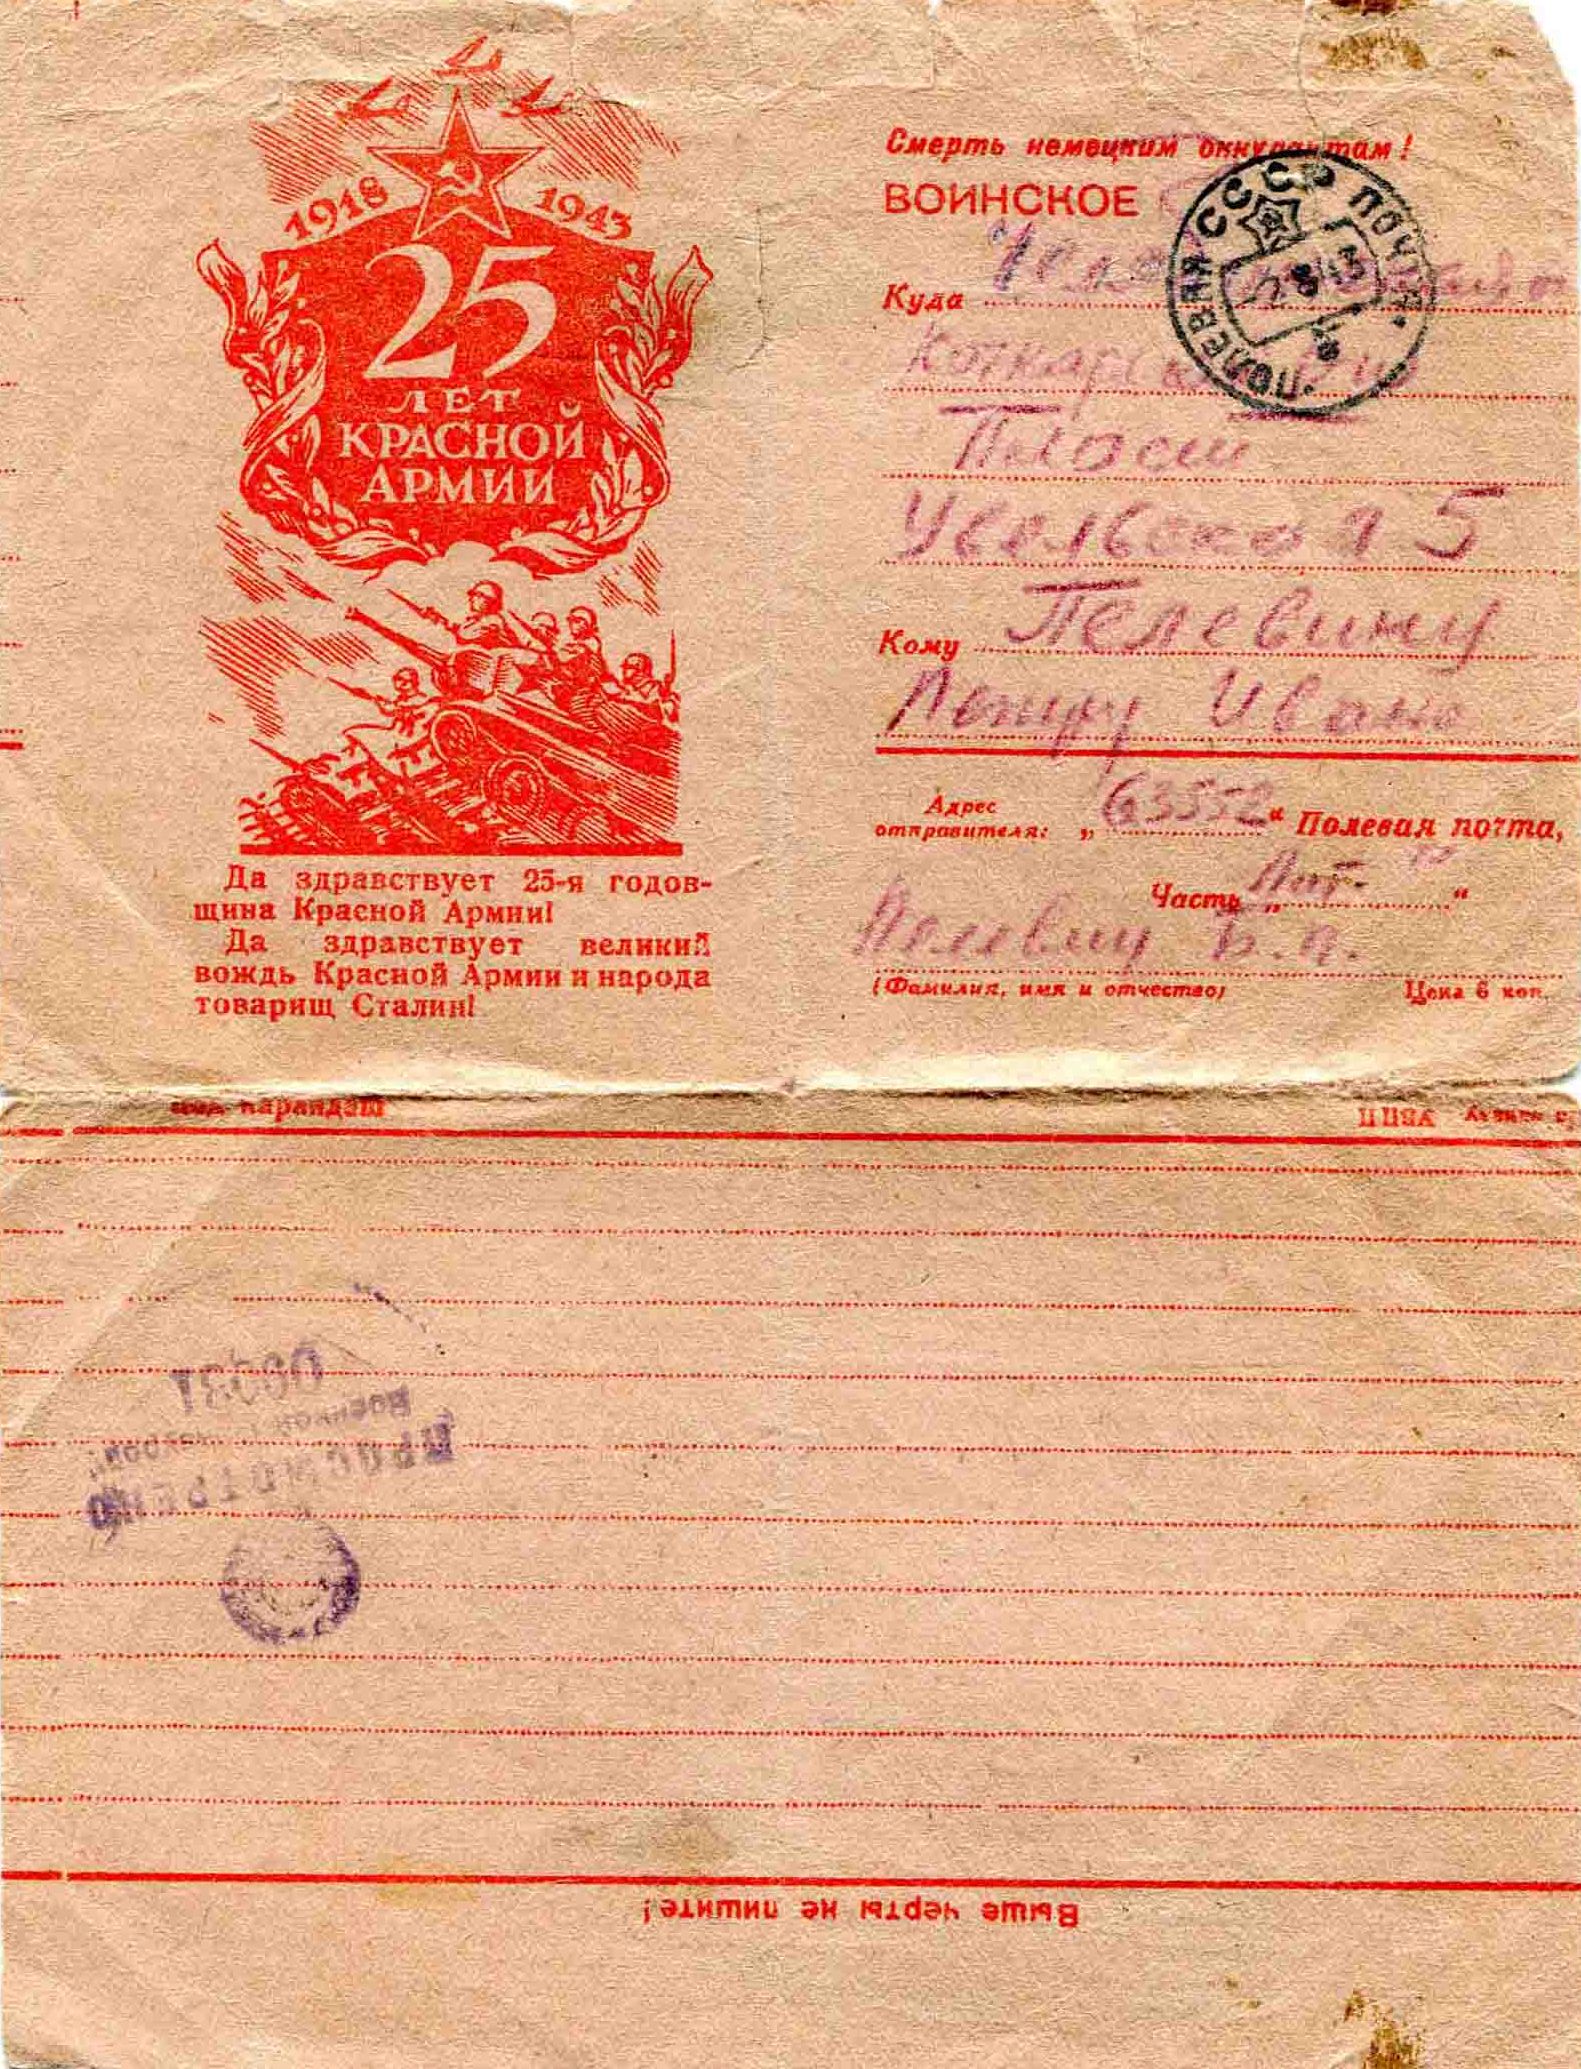 1918 1943
25
ЛЕТ
КРАСНОЙ
АРМИИ
Да здравствует 25-я годов-
щина Красной Армии!
Да здравствует великий
вождь Красной Армии и народа
товарищ Сталин!
Смерть немецким оккупантам!
ВОИНСКОЕ
СССР ПОЧТА
ПОЛЕВАЯ
Куда
Пласт
Увельская 5
Кому Пелевину
Петру Ивано
Адрес
отправителя: „63552“ Полевая почта,
Часть „Лит. “
Пелевин Б.П.
(Фамилия, имя и отчество) Цена 6 коп.
карандаш
Военной Цензурой
ПРОСМОТРЕНО
Выше черты не пишите!